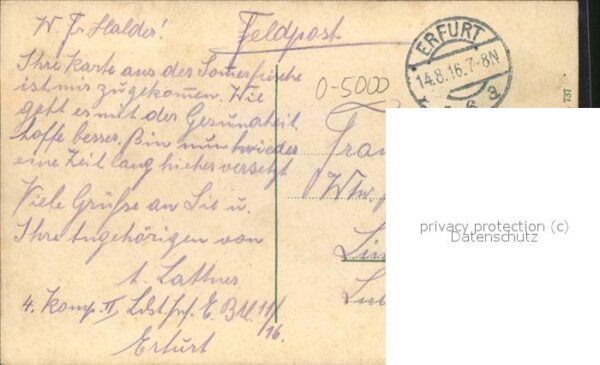 W. Fr. Halder!
Ihre Karte aus der Somerfrische
ist mir zugekomen. Wie
geht es mit der Gesundheit
hoffe besser. Bin nun wieder
eine Zeit lang hieher versetzt
Viele Grüße an Sie u.
Ihre Angehörigen von
A. Lattner
4. Komp. II Ldst. Inf. E. Btl. 11/
16.
Erfurt
Feldpost
0-5000
ERFURT
14.8.16.7-8N
3
737
Frau
Wtw.
privacy protection (c)
Datenschutz